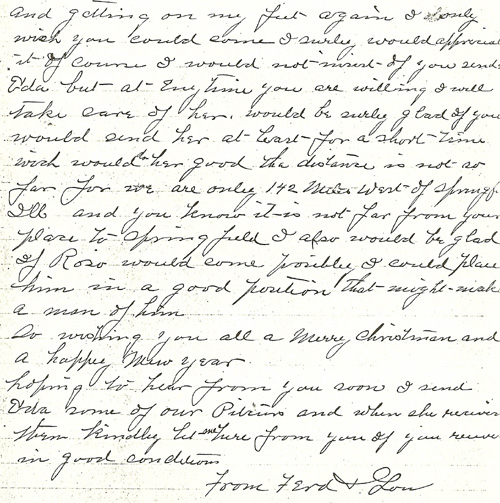 and getting on my feet again I only
wish you could come I surley would appreciat
it of course I would not insist if you send
Eda but at Enytime you are willing I will
take care of her. would be surley glad if you
would send her at least for a short time
wich would do her good the distance is not so
far for we are only 142 Miles West of Springf
Ill and you know it is not far from your
place to Springfield I also would be glad
if Roso would come posibley I could place
him in a good position that might make
a man of him
So wishing you all a Merry Christman and
a happy New year
hoping to hear from you soon I send
Eda some of our and when she receives
them kindley let me here from you if you receive
in good condition
From Ferd & Lou